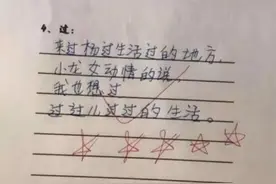 4、过：
来过杨过生活过的地方，
小龙女动情的说：
我也想过
过过儿过过的生活。